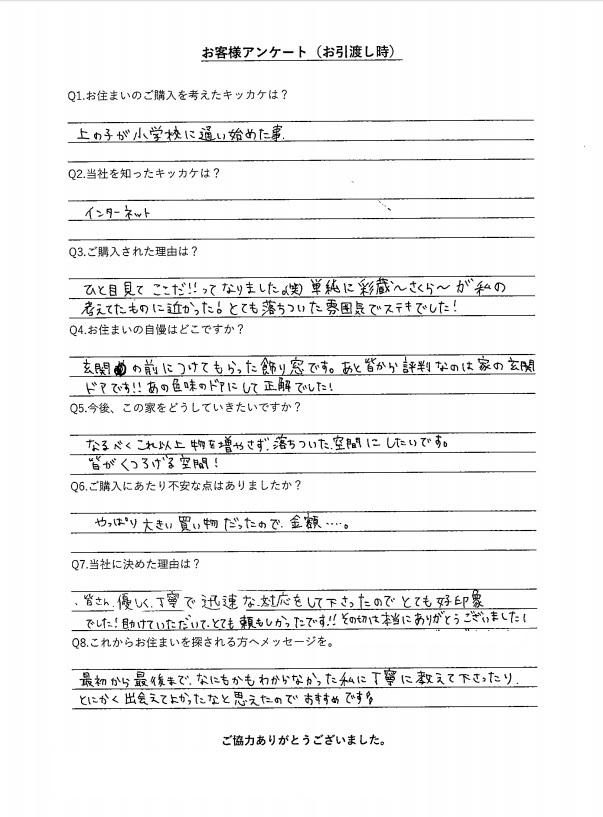 お客様アンケート（お引渡し時）
Q1.お住まいのご購入を考えたキッカケは？
上の子が小学校に通い始めた事.
Q2.当社を知ったキッカケは？
インターネット
Q3.ご購入された理由は？
ひと目見て ここだ!!ってなりました(笑) 単純に彩蔵〜さくら〜が私の
考えてたものに近かった! とても落ちついた雰囲気でステキでした!
Q4.お住まいの自慢はどこですか？
玄関の前につけてもらった飾り窓です。あと皆から評判なのは家の玄関
ドアです!! あの色味のドアにして正解でした!
Q5.今後、この家をどうしていきたいですか？
なるべくこれ以上物を増やさず、落ちついた空間にしたいです。
皆がくつろげる空間!
Q6.ご購入にあたり不安な点はありましたか？
やっぱり大きい買い物だったので、金額....。
Q7.当社に決めた理由は？
、皆さん、優しく、丁寧で迅速な対応をして下さったのでとても好印象
でした! 助けていただいて、とても頼もしかったです!! その切は本当にありがとうございました!
Q8.これからお住まいを探される方へメッセージを。
最初から最後まで、なにもかもわからなかった私に丁寧に教えて下さったり、
とにかく出会えてよかったなと思えたのでおすすめです
ご協力ありがとうございました。